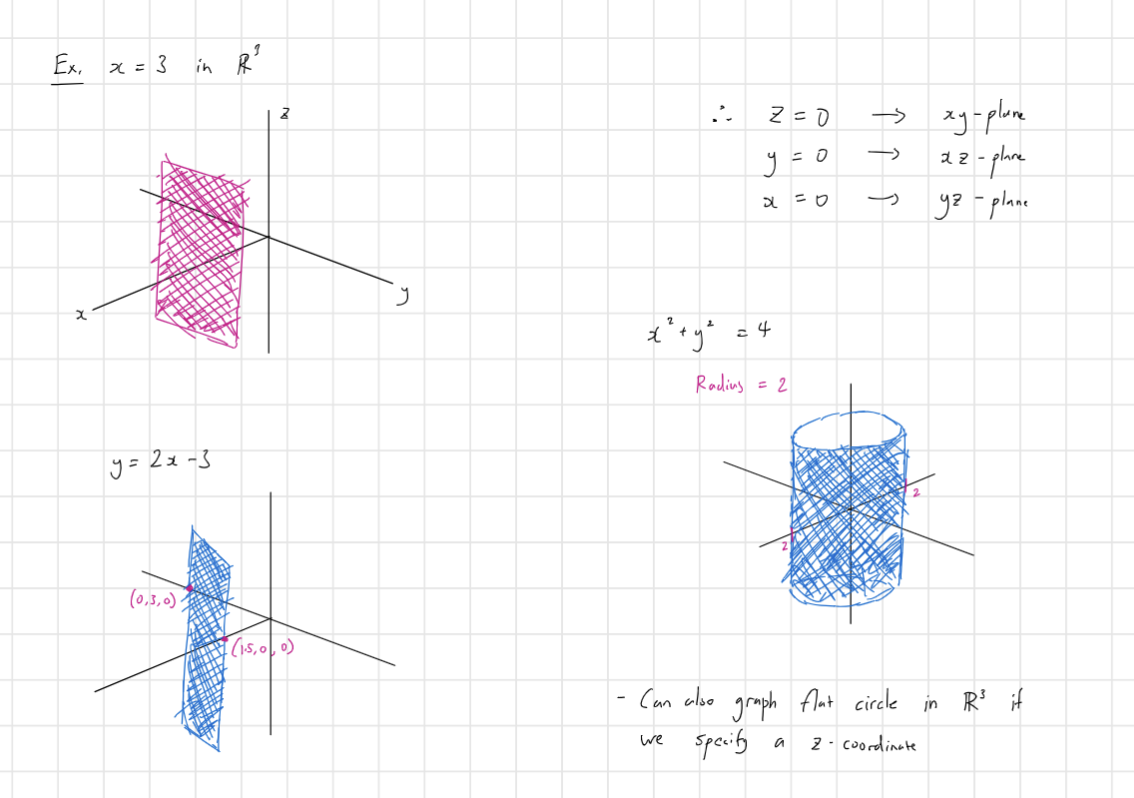 Ex. x = 3 in ℝ³
z
x
y
y = 2x - 3
(0,3,0)
(1.5,0,0)
∴ z = 0 → xy-plane
y = 0 → xz - plane
x = 0 → yz - plane
x² + y² = 4
Radius = 2
2
2
- Can also graph flat circle in ℝ³ if
we specify a z-coordinate